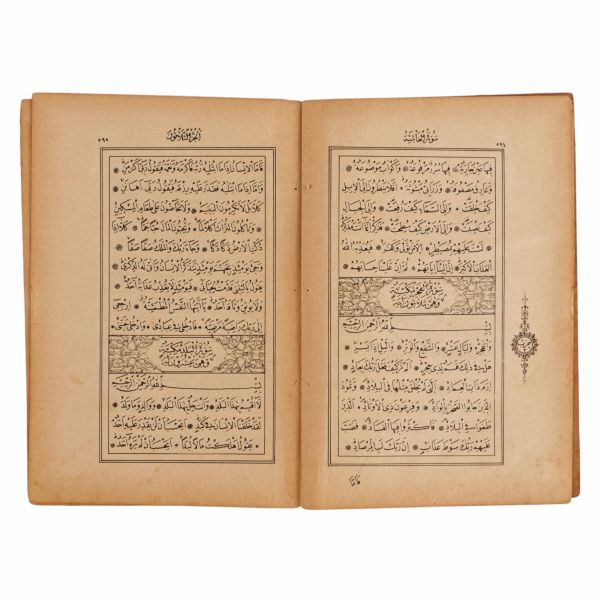 سُورَةُ الْغَاشِيَةِ
٥٩٤
فِيهَا عَيْنٌ جَارِيَةٌ فِيهَا سُرُرٌ مَرْفُوعَةٌ وَأَكْوَابٌ مَوْضُوعَةٌ
وَنَمَارِقُ مَصْفُوفَةٌ وَزَرَابِيُّ مَبْثُوثَةٌ أَفَلَا يَنْظُرُونَ إِلَى الْإِبِلِ
كَيْفَ خُلِقَتْ وَإِلَى السَّمَاءِ كَيْفَ رُفِعَتْ وَإِلَى الْجِبَالِ
كَيْفَ نُصِبَتْ وَإِلَى الْأَرْضِ كَيْفَ سُطِحَتْ فَذَكِّرْ إِنَّمَا أَنْتَ مُذَكِّرٌ
لَسْتَ عَلَيْهِمْ بِمُصَيْطِرٍ إِلَّا مَنْ تَوَلَّى وَكَفَرَ فَيُعَذِّبُهُ اللَّهُ
الْعَذَابَ الْأَكْبَرَ إِنَّ إِلَيْنَا إِيَابَهُمْ ثُمَّ إِنَّ عَلَيْنَا حِسَابَهُمْ
سُورَةُ الْفَجْرِ مَكِّيَّةٌ
وَهِيَ ثَلَاثُونَ آيَةً
بِسْمِ اللَّهِ الرَّحْمَنِ الرَّحِيمِ
وَالْفَجْرِ وَلَيَالٍ عَشْرٍ وَالشَّفْعِ وَالْوَتْرِ وَاللَّيْلِ إِذَا يَسْرِ
هَلْ فِي ذَلِكَ قَسَمٌ لِذِي حِجْرٍ أَلَمْ تَرَ كَيْفَ فَعَلَ رَبُّكَ بِعَادٍ
إِرَمَ ذَاتِ الْعِمَادِ الَّتِي لَمْ يُخْلَقْ مِثْلُهَا فِي الْبِلَادِ وَثَمُودَ
الَّذِينَ جَابُوا الصَّخْرَ بِالْوَادِ وَفِرْعَوْنَ ذِي الْأَوْتَادِ الَّذِينَ
طَغَوْا فِي الْبِلَادِ فَأَكْثَرُوا فِيهَا الْفَسَادَ فَصَبَّ
عَلَيْهِمْ رَبُّكَ سَوْطَ عَذَابٍ إِنَّ رَبَّكَ لَبِالْمِرْصَادِ
فَأَمَّا
الْجُزْءُ الثَّلَاثُونَ
٥٩٥
فَأَمَّا الْإِنْسَانُ إِذَا مَا ابْتَلَاهُ رَبُّهُ فَأَكْرَمَهُ وَنَعَّمَهُ فَيَقُولُ رَبِّي أَكْرَمَنِ
وَأَمَّا إِذَا مَا ابْتَلَاهُ فَقَدَرَ عَلَيْهِ رِزْقَهُ فَيَقُولُ رَبِّي أَهَانَنِ
كَلَّا بَلْ لَا تُكْرِمُونَ الْيَتِيمَ وَلَا تَحَاضُّونَ عَلَى طَعَامِ الْمِسْكِينِ
وَتَأْكُلُونَ التُّرَاثَ أَكْلًا لَمًّا وَتُحِبُّونَ الْمَالَ حُبًّا جَمًّا كَلَّا إِذَا
دُكَّتِ الْأَرْضُ دَكًّا دَكًّا وَجَاءَ رَبُّكَ وَالْمَلَكُ صَفًّا صَفًّا
وَجِيءَ يَوْمَئِذٍ بِجَهَنَّمَ يَوْمَئِذٍ يَتَذَكَّرُ الْإِنْسَانُ وَأَنَّى لَهُ الذِّكْرَى
يَقُولُ يَا لَيْتَنِي قَدَّمْتُ لِحَيَاتِي فَيَوْمَئِذٍ لَا يُعَذِّبُ عَذَابَهُ أَحَدٌ
وَلَا يُوثِقُ وَثَاقَهُ أَحَدٌ يَا أَيَّتُهَا النَّفْسُ الْمُطْمَئِنَّةُ ارْجِعِي
إِلَى رَبِّكِ رَاضِيَةً مَرْضِيَّةً فَادْخُلِي فِي عِبَادِي وَادْخُلِي جَنَّتِي
سُورَةُ الْبَلَدِ مَكِّيَّةٌ
وَهِيَ عِشْرُونَ آيَةً
بِسْمِ اللَّهِ الرَّحْمَنِ الرَّحِيمِ
لَا أُقْسِمُ بِهَذَا الْبَلَدِ وَأَنْتَ حِلٌّ بِهَذَا الْبَلَدِ وَوَالِدٍ وَمَا وَلَدَ
لَقَدْ خَلَقْنَا الْإِنْسَانَ فِي كَبَدٍ أَيَحْسَبُ أَنْ لَنْ يَقْدِرَ عَلَيْهِ أَحَدٌ
يَقُولُ أَهْلَكْتُ مَالًا لُبَدًا أَيَحْسَبُ أَنْ لَمْ يَرَهُ أَحَدٌ